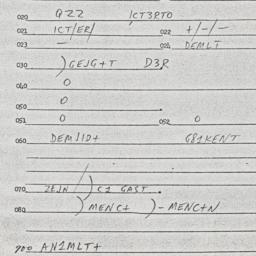 020 QZZ ICT3RTO
021 ICT/ER/ 022 +/-/-
023 — 024 DEMLT
030 )GEJG+T D3R
040 O
050 O
051 O 052 O
060 DEMJID+ G81KENT
070 ZEJN /)C1 GAST
080 )MENC+ )-MENC+N
900 AN1MLT+